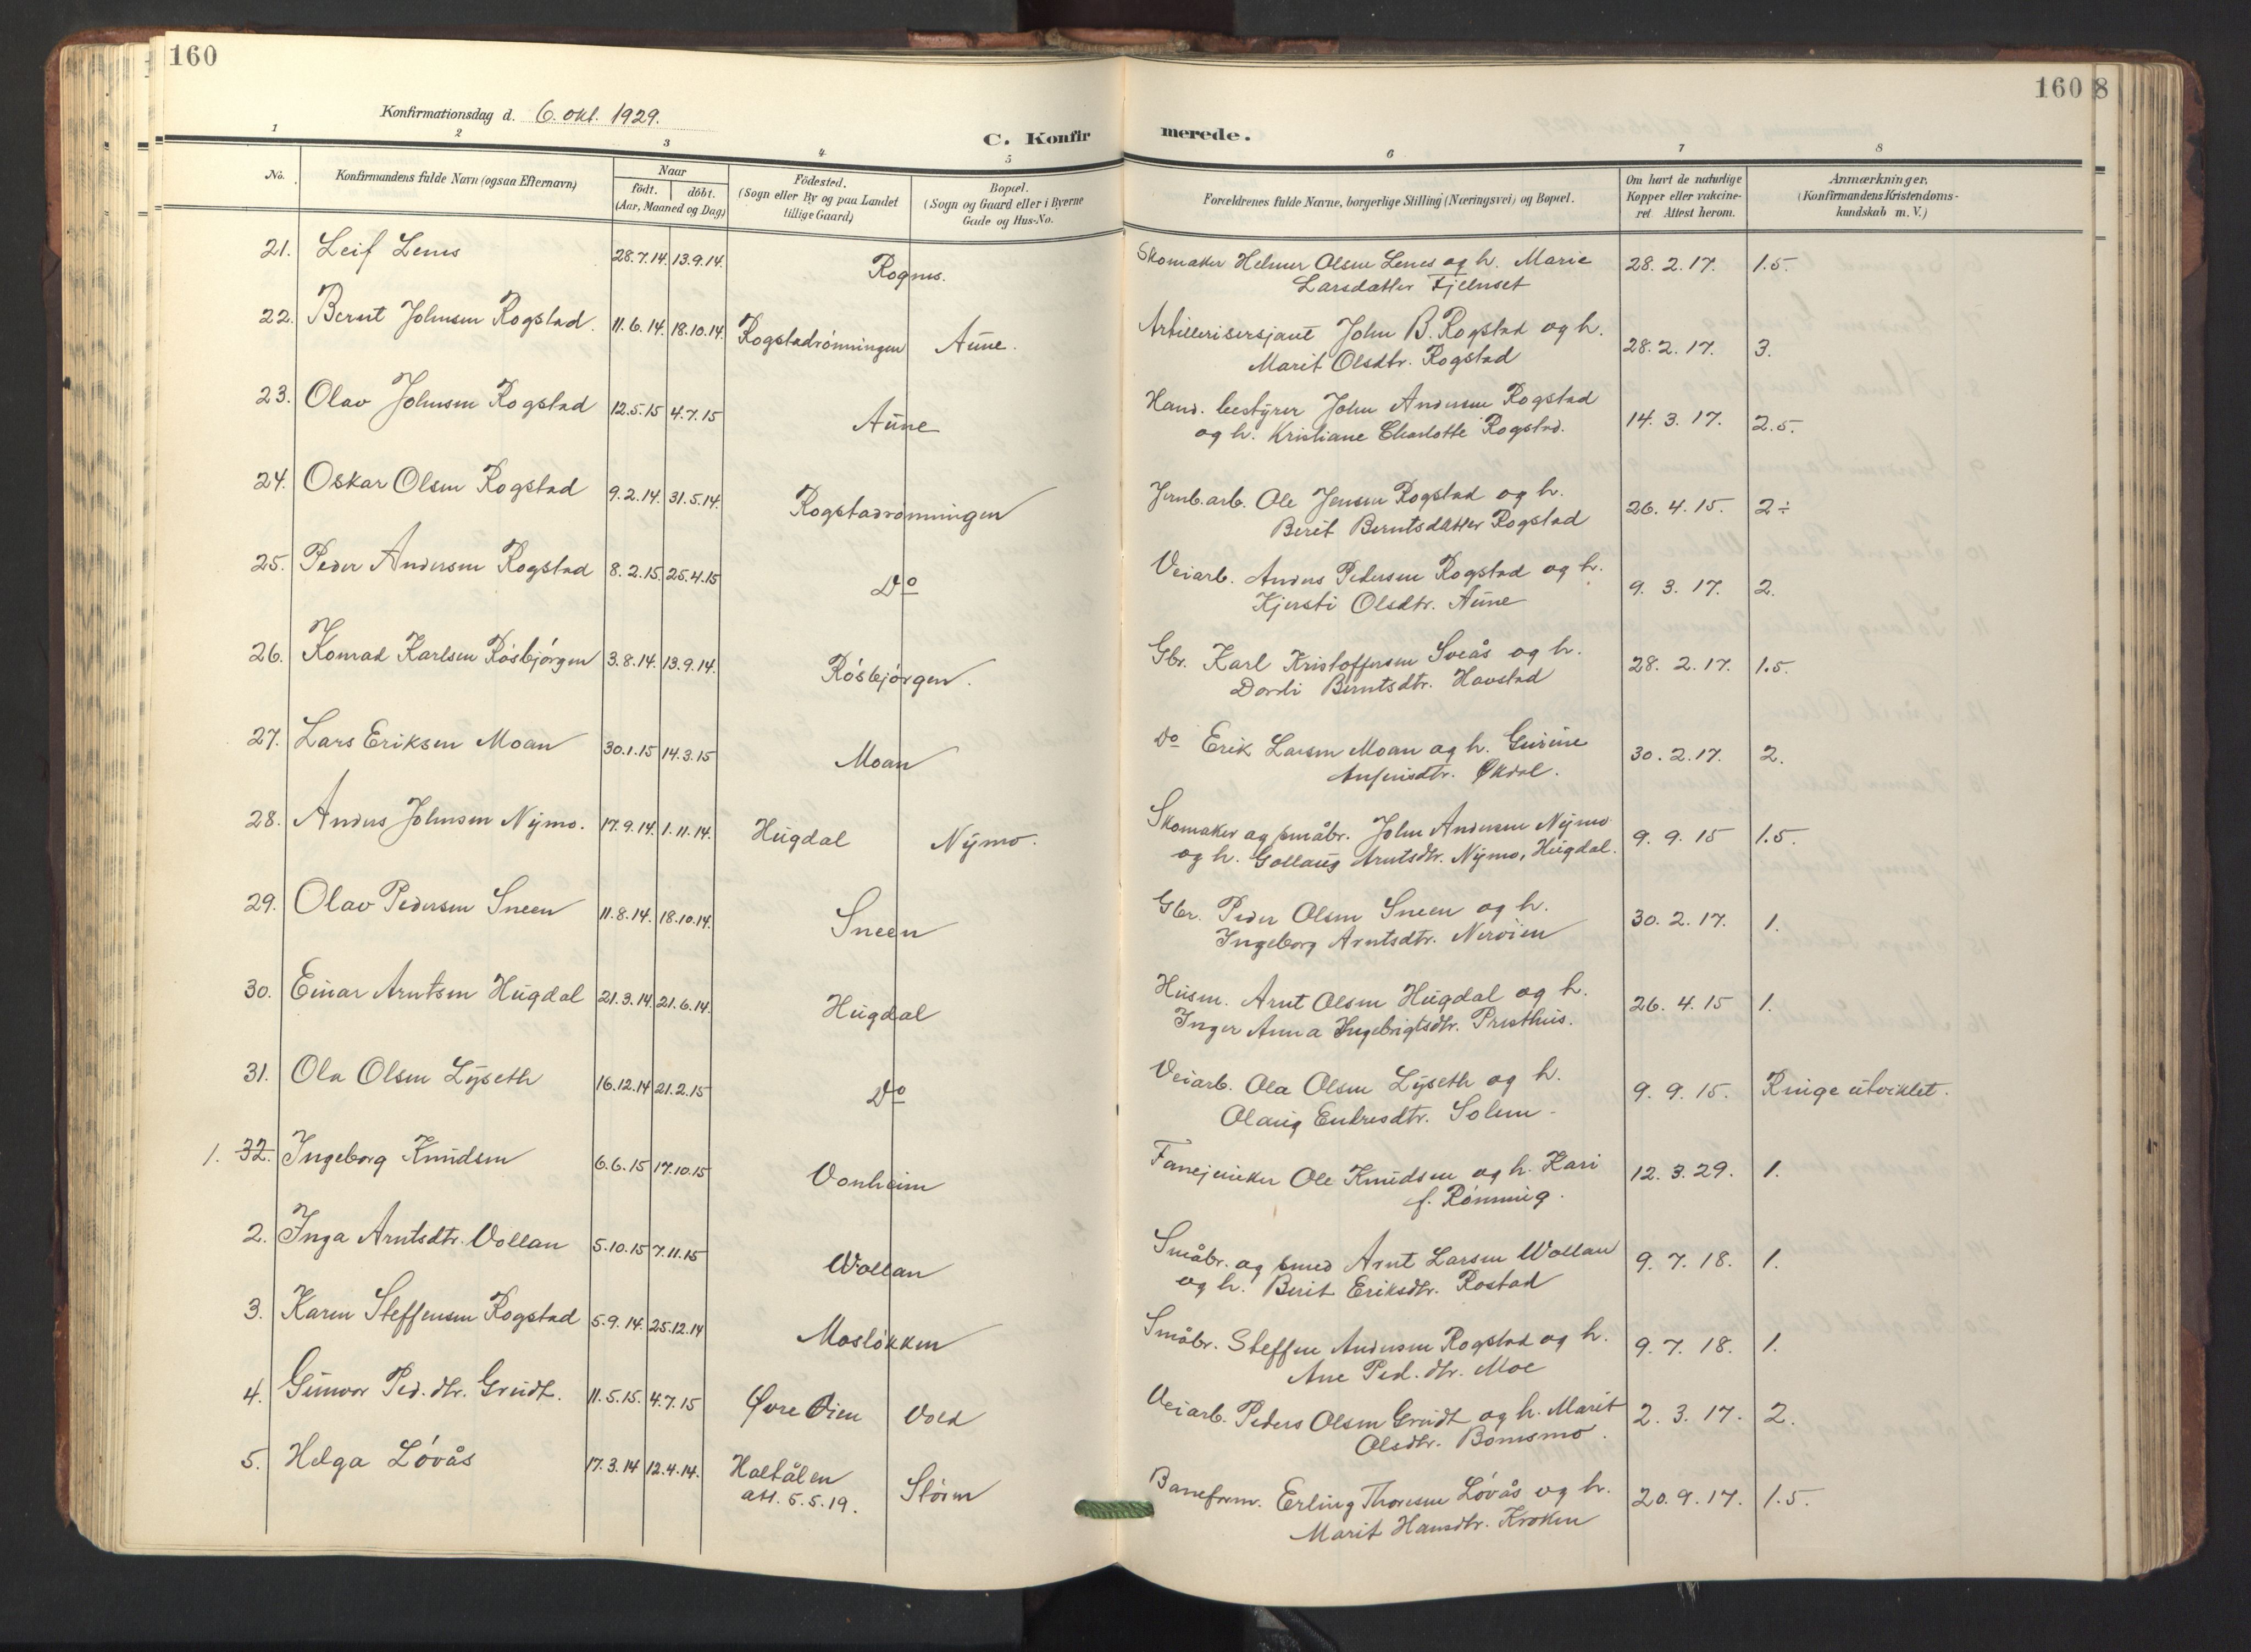 160
160 8
Konfirmationsdag d. 6. okt. 1929.
C. Konfirmerede.
1 2 3 4 5 6 7 8
No. Konfirmandens fulde Navn (ogsaa Efternavn) Naar födt. döbt. (Aar, Maaned og Dag) Födested. (Sogn eller By og paa Landet tillige Gaard) Bopæl. (Sogn og Gaard eller i Byerne Gade og Hus-No. Forældrenes fulde Navne, borgerlige Stilling (Næringsvei) og Bopæl. Om havt de naturlige Kopper eller vakcineret. Attest herom. Anmærkninger. (Konfirmandens Kristendomskundskab m. V.)
21. Leif Lenes 28.7.14. 13.9.14. Rognes. Skomaker Helmer Olsen Lenes og h. Marie 28. 2. 17. 1.5.
Larsdatter Fjelnset
22. Bernt Johnsen Rogstad. 11.6.14. 18.10.14. Rogstadrönningen Aune. Artillerisersjant John B. Rogstad og h. 28. 2. 17. 3.
Marit Olsdtr. Rogstad
23. Olav Johnsen Rogstad 12.5.15 4.7.15 Aune Hand. bestyrer John Andersen Rogstad 14. 3. 17. 2.5.
og h. Kristiane Charlotte Rogstad.
24. Oskar Olsen Rogstad 9.2.14. 31.5.14. Rogstadrönningen Jernb.arb. Ole Jensen Rogstad og h. 26. 4. 15. 2÷
Berit Berntsdatter Rogstad
25. Peder Andersen Rogstad 8.2.15. 25.4.15 Do Veiarb. Anders Pedersen Rogstad og h. 9. 3. 17. 2.
Kjersti Olsdtr. Aune
26. Konrad Karlsen Rösbjörgen 3.8.14. 13.9.14. Rösbjörgen. Gbr. Karl Kristoffersen Sveås og h. 28. 2. 17. 1.5.
Dordi Berntsdtr. Havstad
27. Lars Eriksen Moan 30.1.15 14.3.15 Moan Do Erik Larsen Moan og h. Gurine 30. 2. 17. 2.
Anfinsdtr. Økdal.
28. Anders Johnsen Nymo. 17.9.14. 1.11.14. Hugdal Nymo. Skomaker og småbr. John Andersen Nymo 9. 9. 15 1.5.
og h. Gollaug Arntsdtr. Nymo, Hugdal.
29. Olav Pedersen Sneen 11.8.14. 18.10.14. Sneen Gbr. Peder Olsen Sneen og h. 30. 2. 17. 1.
Ingeborg Arntsdtr. Neröien
30. Einar Arntsen Hugdal 21.3.14. 21.6.14. Hugdal Husm. Arnt Olsen Hugdal og h. 26. 4. 15 1.
Inger Anna Ingebrigtsdtr. Presthus.
31. Ola Olsen Lyseth 16.12.14 21.2.15 Do Veiarb. Ola Olsen Lyseth og h. 9. 9. 15. Ringe utviklet.
Olaug Endresdtr. Solem
1. 32. Ingeborg Knudsen 6.6.15 17.10.15 Vonheim Fanejunker Ole Knudsen og h. Kari 12. 3. 29. 1.
f. Rönning.
2. Inga Arntsdtr. Vollan 5.10.15 7.11.15 Wollan Småbr. og smed Arnt Larsen Wollan 9. 7. 18. 1.
og h. Berit Eriksdtr. Rostad
3. Karen Steffensen Rogstad 5.9.14. 25.12.14 Moslökken Småbr. Steffen Andersen Rogstad og h. 9. 7. 18. 1.
Ane Ped. dtr. Moe
4. Gunvor Ped. dtr. Grudt. 11.5.15. 4.7.15 Øvre Öien Vold Veiarb. Peders Olsen Grudt og h. Marit 2. 3. 17. 2.
Olsdtr. Bonesmo.
5. Helga Lövås 17.3.14 12.4.14. Haltålen Stören Baneform. Erling Thoresen Lövås og h. 20. 9. 17. 1.5.
att. 5.5.19. Marit Hansdtr. Kroken